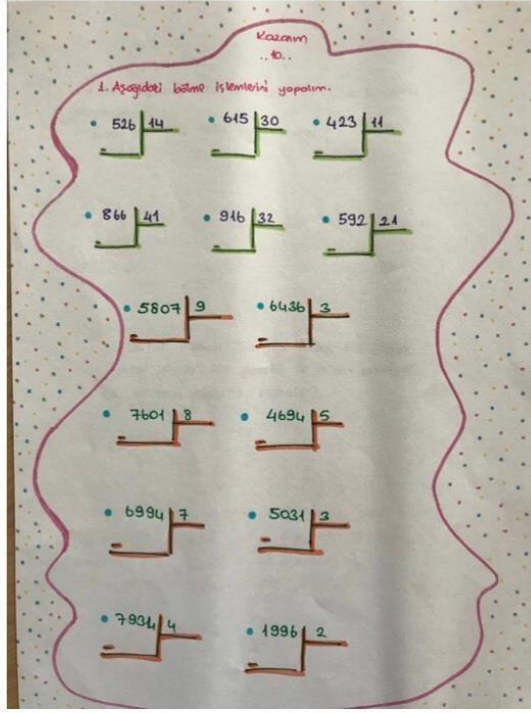 Kazanım
..10..
1. Aşağıdaki bölme işlemlerini yapalım.
526 14 615 30 423 11
866 41 916 32 592 21
5807 9 6436 3
7601 8 4694 5
6994 7 5031 3
7934 4 1996 2